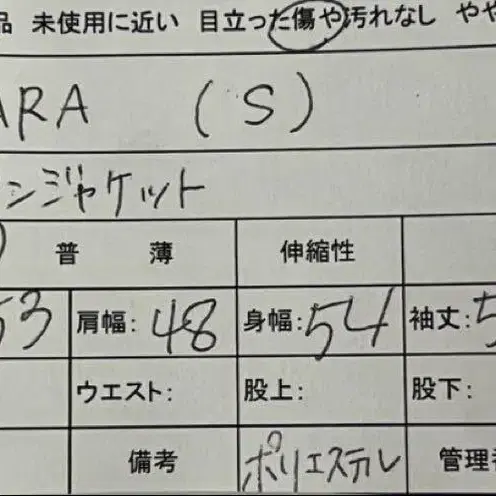 品 未使用に近い 目立った傷や汚れなし やや
ARA (S)
ンジャケット
普 薄 伸縮性
53 肩幅: 48 身幅: 54 袖丈: 5
ウエスト: 股上: 股下:
備考 ポリエステル 管理